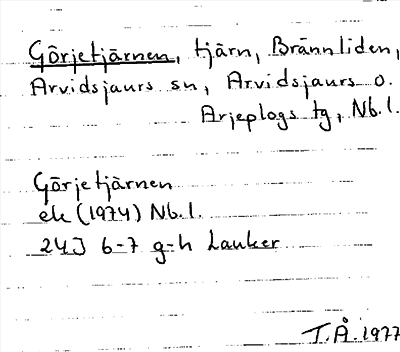 Görjetjärnen, tjärn, Brännliden,
Arvidsjaurs sn, Arvidsjaurs o.
Arjeplogs tg, Nb. l.
Görjetjärnen
ek (1974) Nb. l.
24J 6-7 g-h Lauker
T.Å. 1977